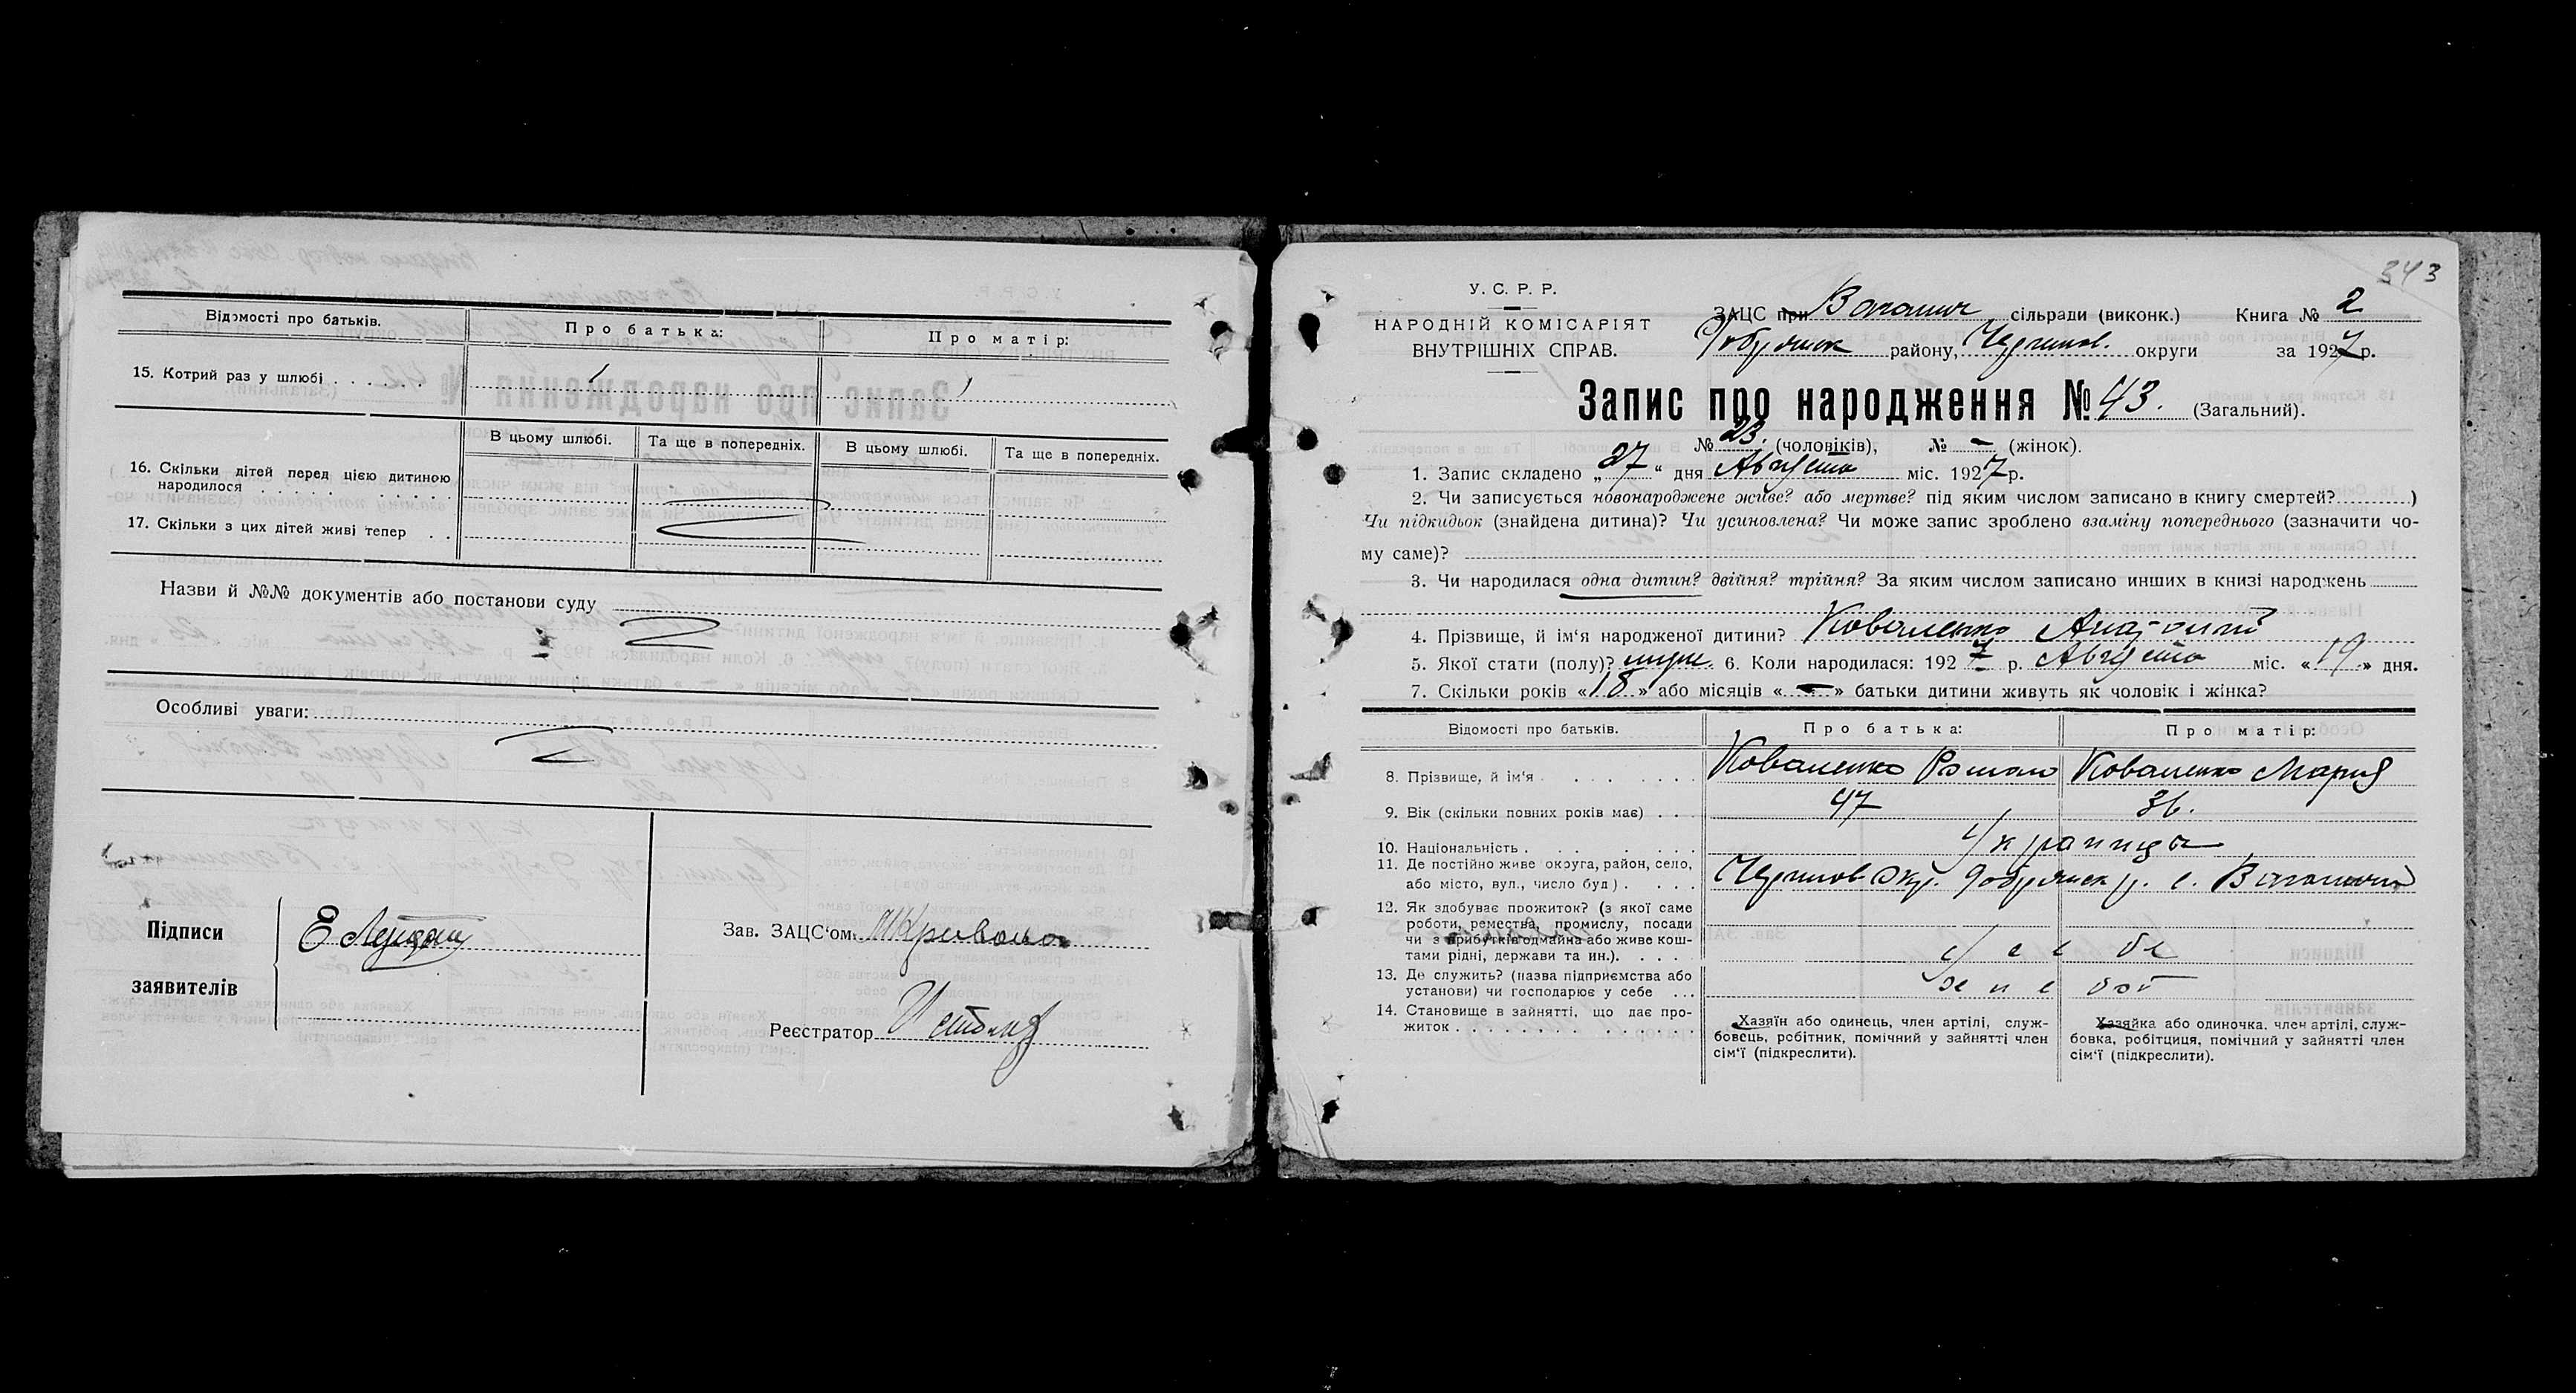 Відомості про батьків.
Про батька:
Про матір:
15. Котрий раз у шлюбі . . . . . .
1
1
В цьому шлюбі.
Та ще в попередніх.
В цьому шлюбі.
Та ще в попередніх.
16. Скільки дітей перед цією дитиною
народилося . . . . . . . . . .
17. Скільки з цих дітей живі тепер . .
Назви й №№ документів або постанови суду
Особливі уваги:
Підписи
заявителів
Зав. ЗАЦС‘ом
Реєстратор
343
У. С. Р. Р.
НАРОДНІЙ КОМІСАРІЯТ
ВНУТРІШНІХ СПРАВ.
ЗАЦС при сільради (виконк.) Книга № 2
району, Чернигов. округи за 1927 р.
Запис про народження № 43. (Загальний).
№ 23. (чоловіків), № – (жінок).
1. Запис складено „27“ дня Августа міс. 1927 р.
2. Чи записується новонароджене живе? або мертве? під яким числом записано в книгу смертей? )
Чи підкидьок (знайдена дитина)? Чи усиновлена? Чи може запис зроблено взаміну попереднього (зазначити чо-
му саме)?
3. Чи народилася одна дитин? двійня? трійня? За яким числом записано инших в книзі народжень
4. Прізвище, й ім‘я народженої дитини? Коваленко
5. Якої стати (полу)? муж. 6. Коли народилася: 1927 р. Августа міс. «19» дня.
7. Скільки років «18» або місяців «–» батьки дитини живуть як чоловік і жінка?
Відомості про батьків.
Про батька:
Про матір:
8. Прізвище, й ім‘я . . . . . . .
Коваленко Роман
Коваленко Мария
9. Вік (скільки повних років має) . . .
47
36.
10. Національність . . . . . .
Украинцы
11. Де постійно живе округа, район, село,
або місто, вул., число буд.) . . . .
Чернигов. Окр. Добрянск р. с.
12. Як здобуває прожиток? (з якої саме
роботи, ремества, промислу, посади
чи з прибутків одмайна або живе кош-
тами рідні, держави та ин.). . . . .
13. Де служить? (назва підприємства або
установи) чи господарює у себе . . .
14. Становище в зайнятті, що дає про-
житок . . . . . . . . . . . .
Хазяїн або одинець, член артілі, служ-
бовець, робітник, помічний у зайнятті член
сім‘ї (підкреслити).
Хазяйка або одиночка, член артілі, служ-
бовка, робітниця, помічний у зайнятті член
сім‘ї (підкреслити).